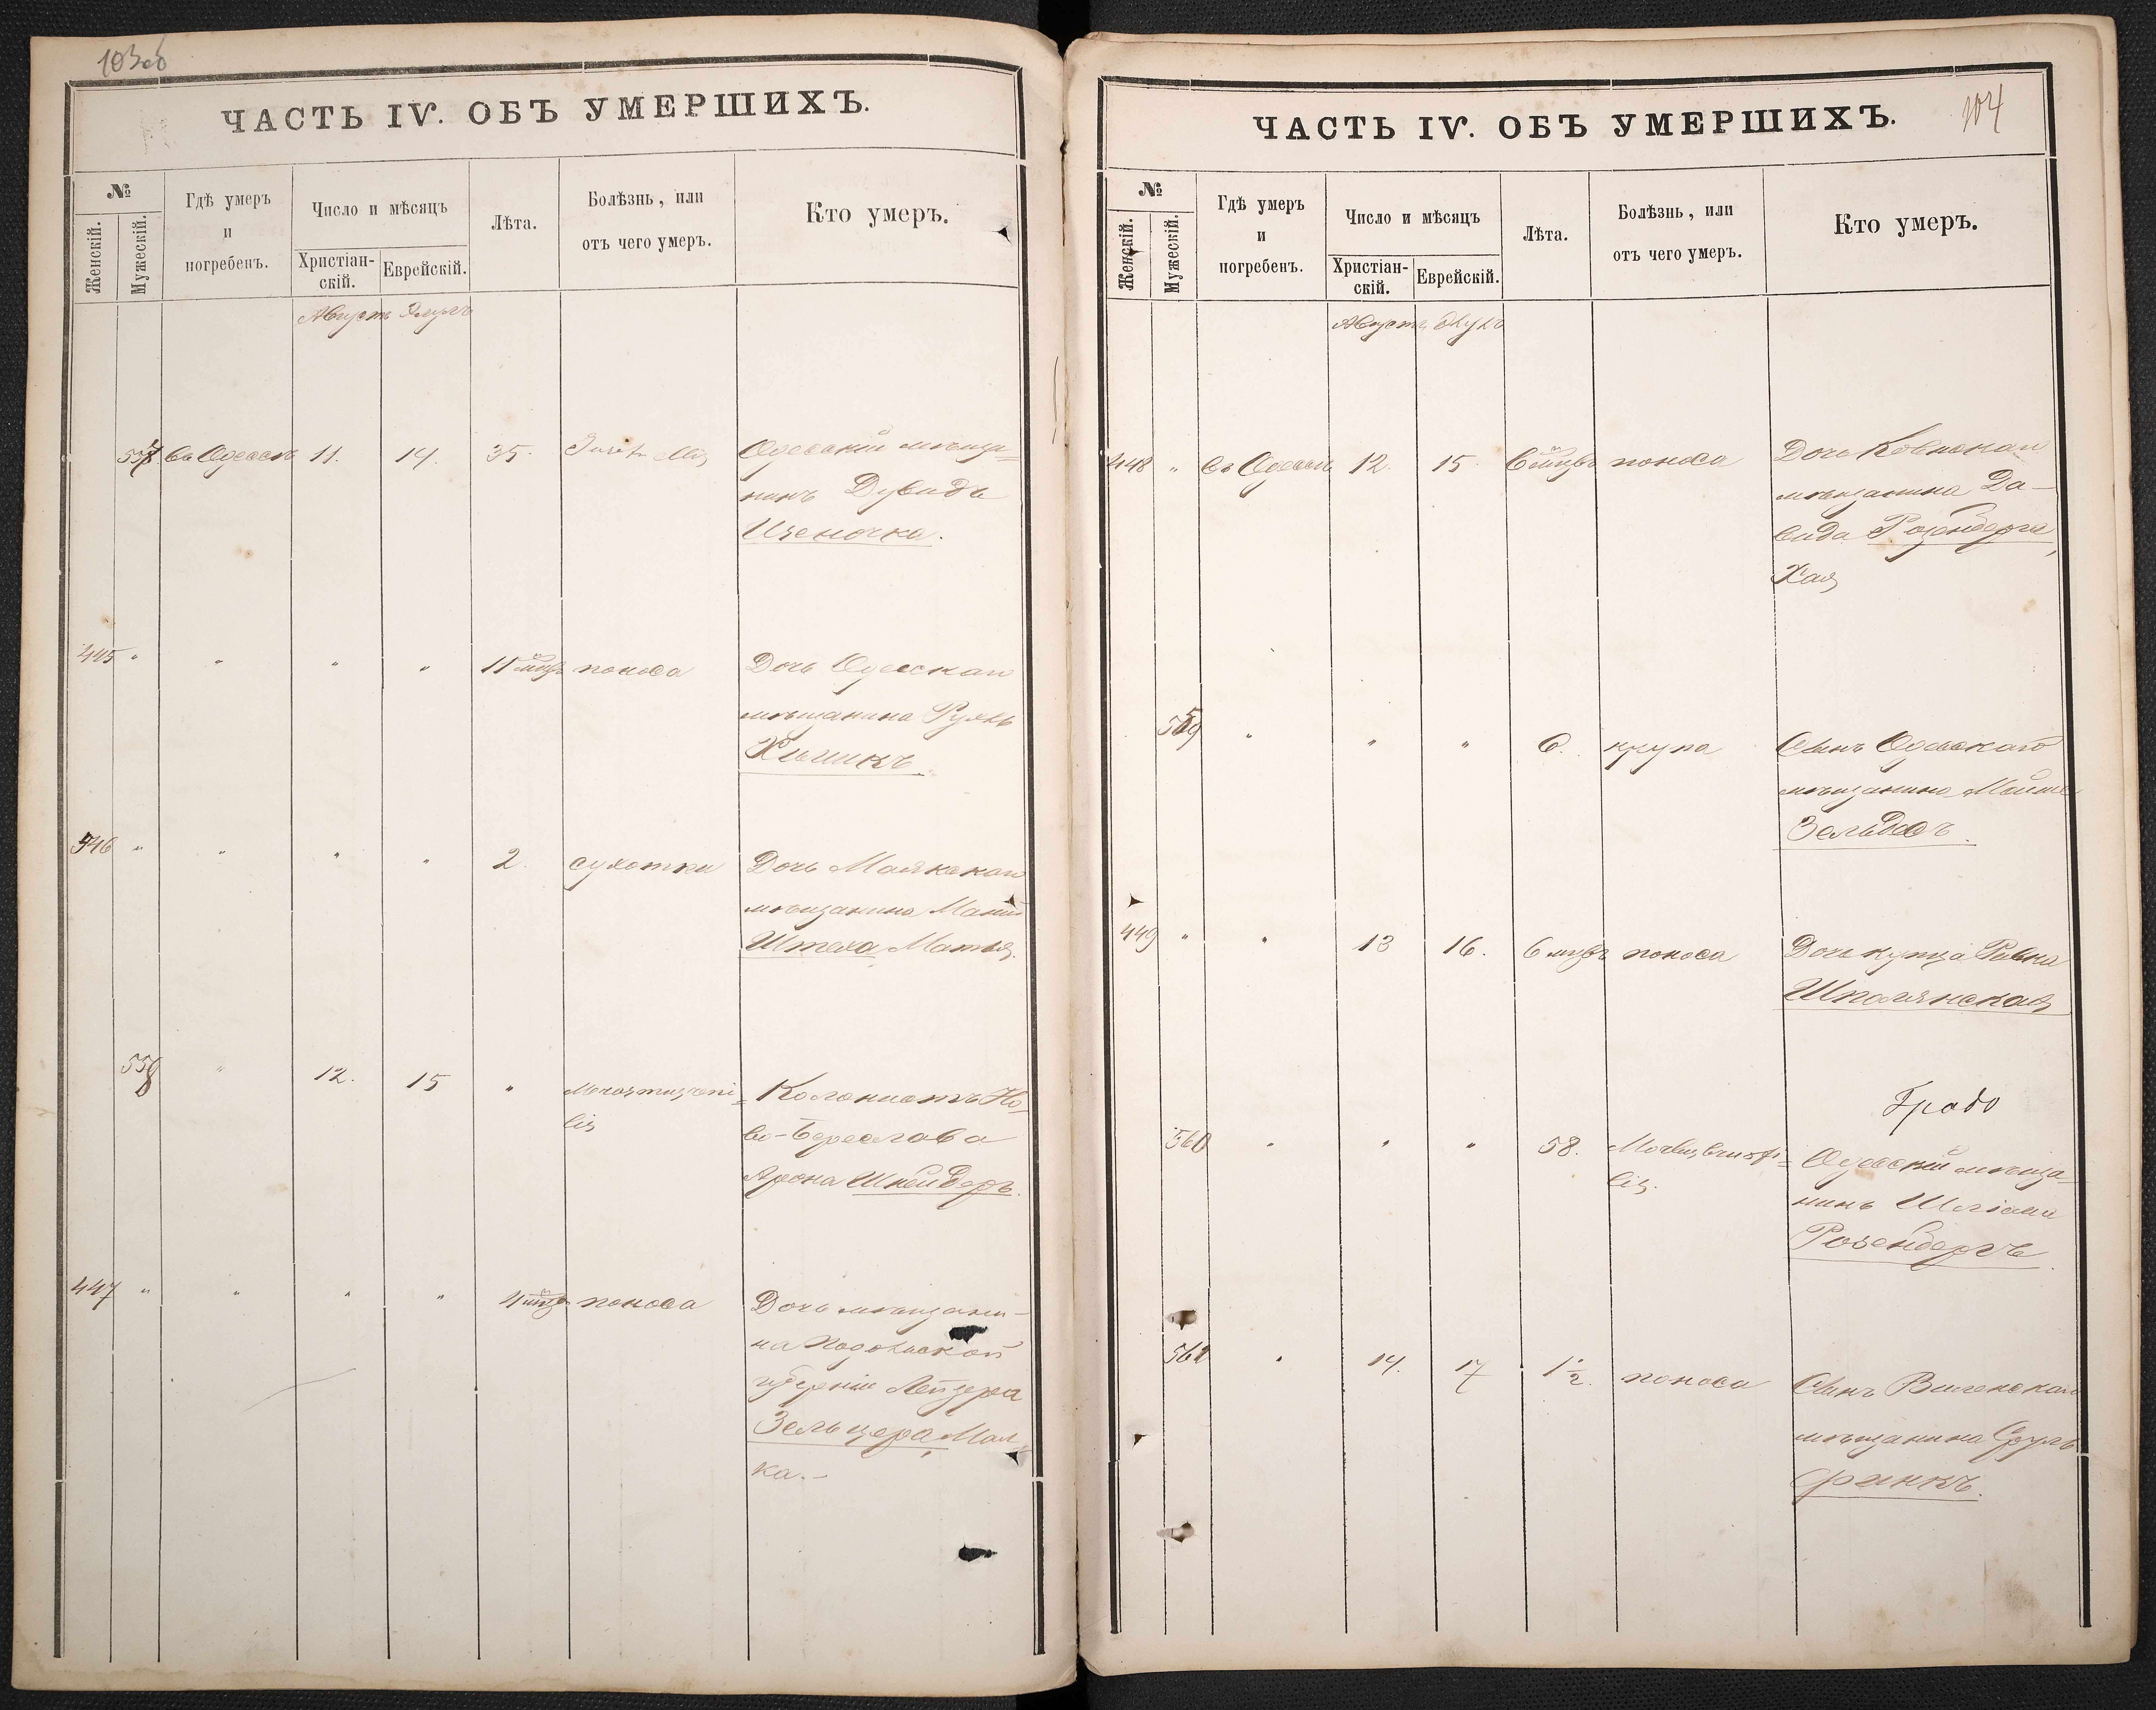 103об
ЧАСТЬ IV. ОБЪ УМЕРШИХЪ.
№
Женскій.
Мужескій.
Гдѣ умеръ
и
погребенъ.
Число и мѣсяцъ
Христіан-
скій.
Еврейскій.
Лѣта.
Болѣзнь, или
отъ чего умеръ.
Кто умеръ.
Августъ Элулъ
557 въ Одессѣ 11. 14. 35. Одесскій мѣща=
нинъ Дувидъ
445 " " " " 11 мцвъ поноса Дочь Одесскаго
мѣщанина Рухль
446 " " " " 2. сухотки Дочь Маякскаго
мѣщанина
Штеха Матля.
558 " 12. 15 " Колонистъ Но-
во-Береслава
Арона Шнейдеръ.
447 " " " " 4 мцвъ поноса Дочь мѣщани-
на Подольской
губерніи Лейзера
Зельцера, Мал-
ка.-
104
ЧАСТЬ IV. ОБЪ УМЕРШИХЪ.
№
Женскій.
Мужескій.
Гдѣ умеръ
и
погребенъ.
Число и мѣсяцъ
Христіан-
скій.
Еврейскій.
Лѣта.
Болѣзнь, или
отъ чего умеръ.
Кто умеръ.
Августъ Элулъ
448 " въ Одессѣ 12. 15. 6 мцвъ поноса Дочь Ковенскаго
мѣщанина Да-
вида Розенберга,
Хая
559 " " " 6. крупа Сынъ Одесскаго
мѣщанина
449 " " 13 16. 6 мцвъ поноса Дочь купца Ривка
Шполянская
560 " " " 58. Одесскій мѣща-
нинъ
Розенбергъ.
561 " 14. 17 1½. поноса Сынъ Виленскаго
мѣщанина Сруль
Финкъ.